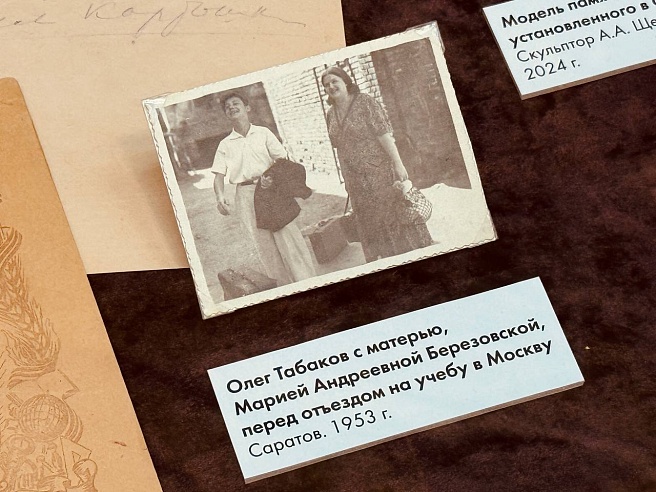 Модель
установленного в
Скульптор А.А.
2024 г.
Олег Табаков с матерью,
Марией Андреевной Березовской,
перед отъездом на учебу в Москву
Саратов. 1953 г.